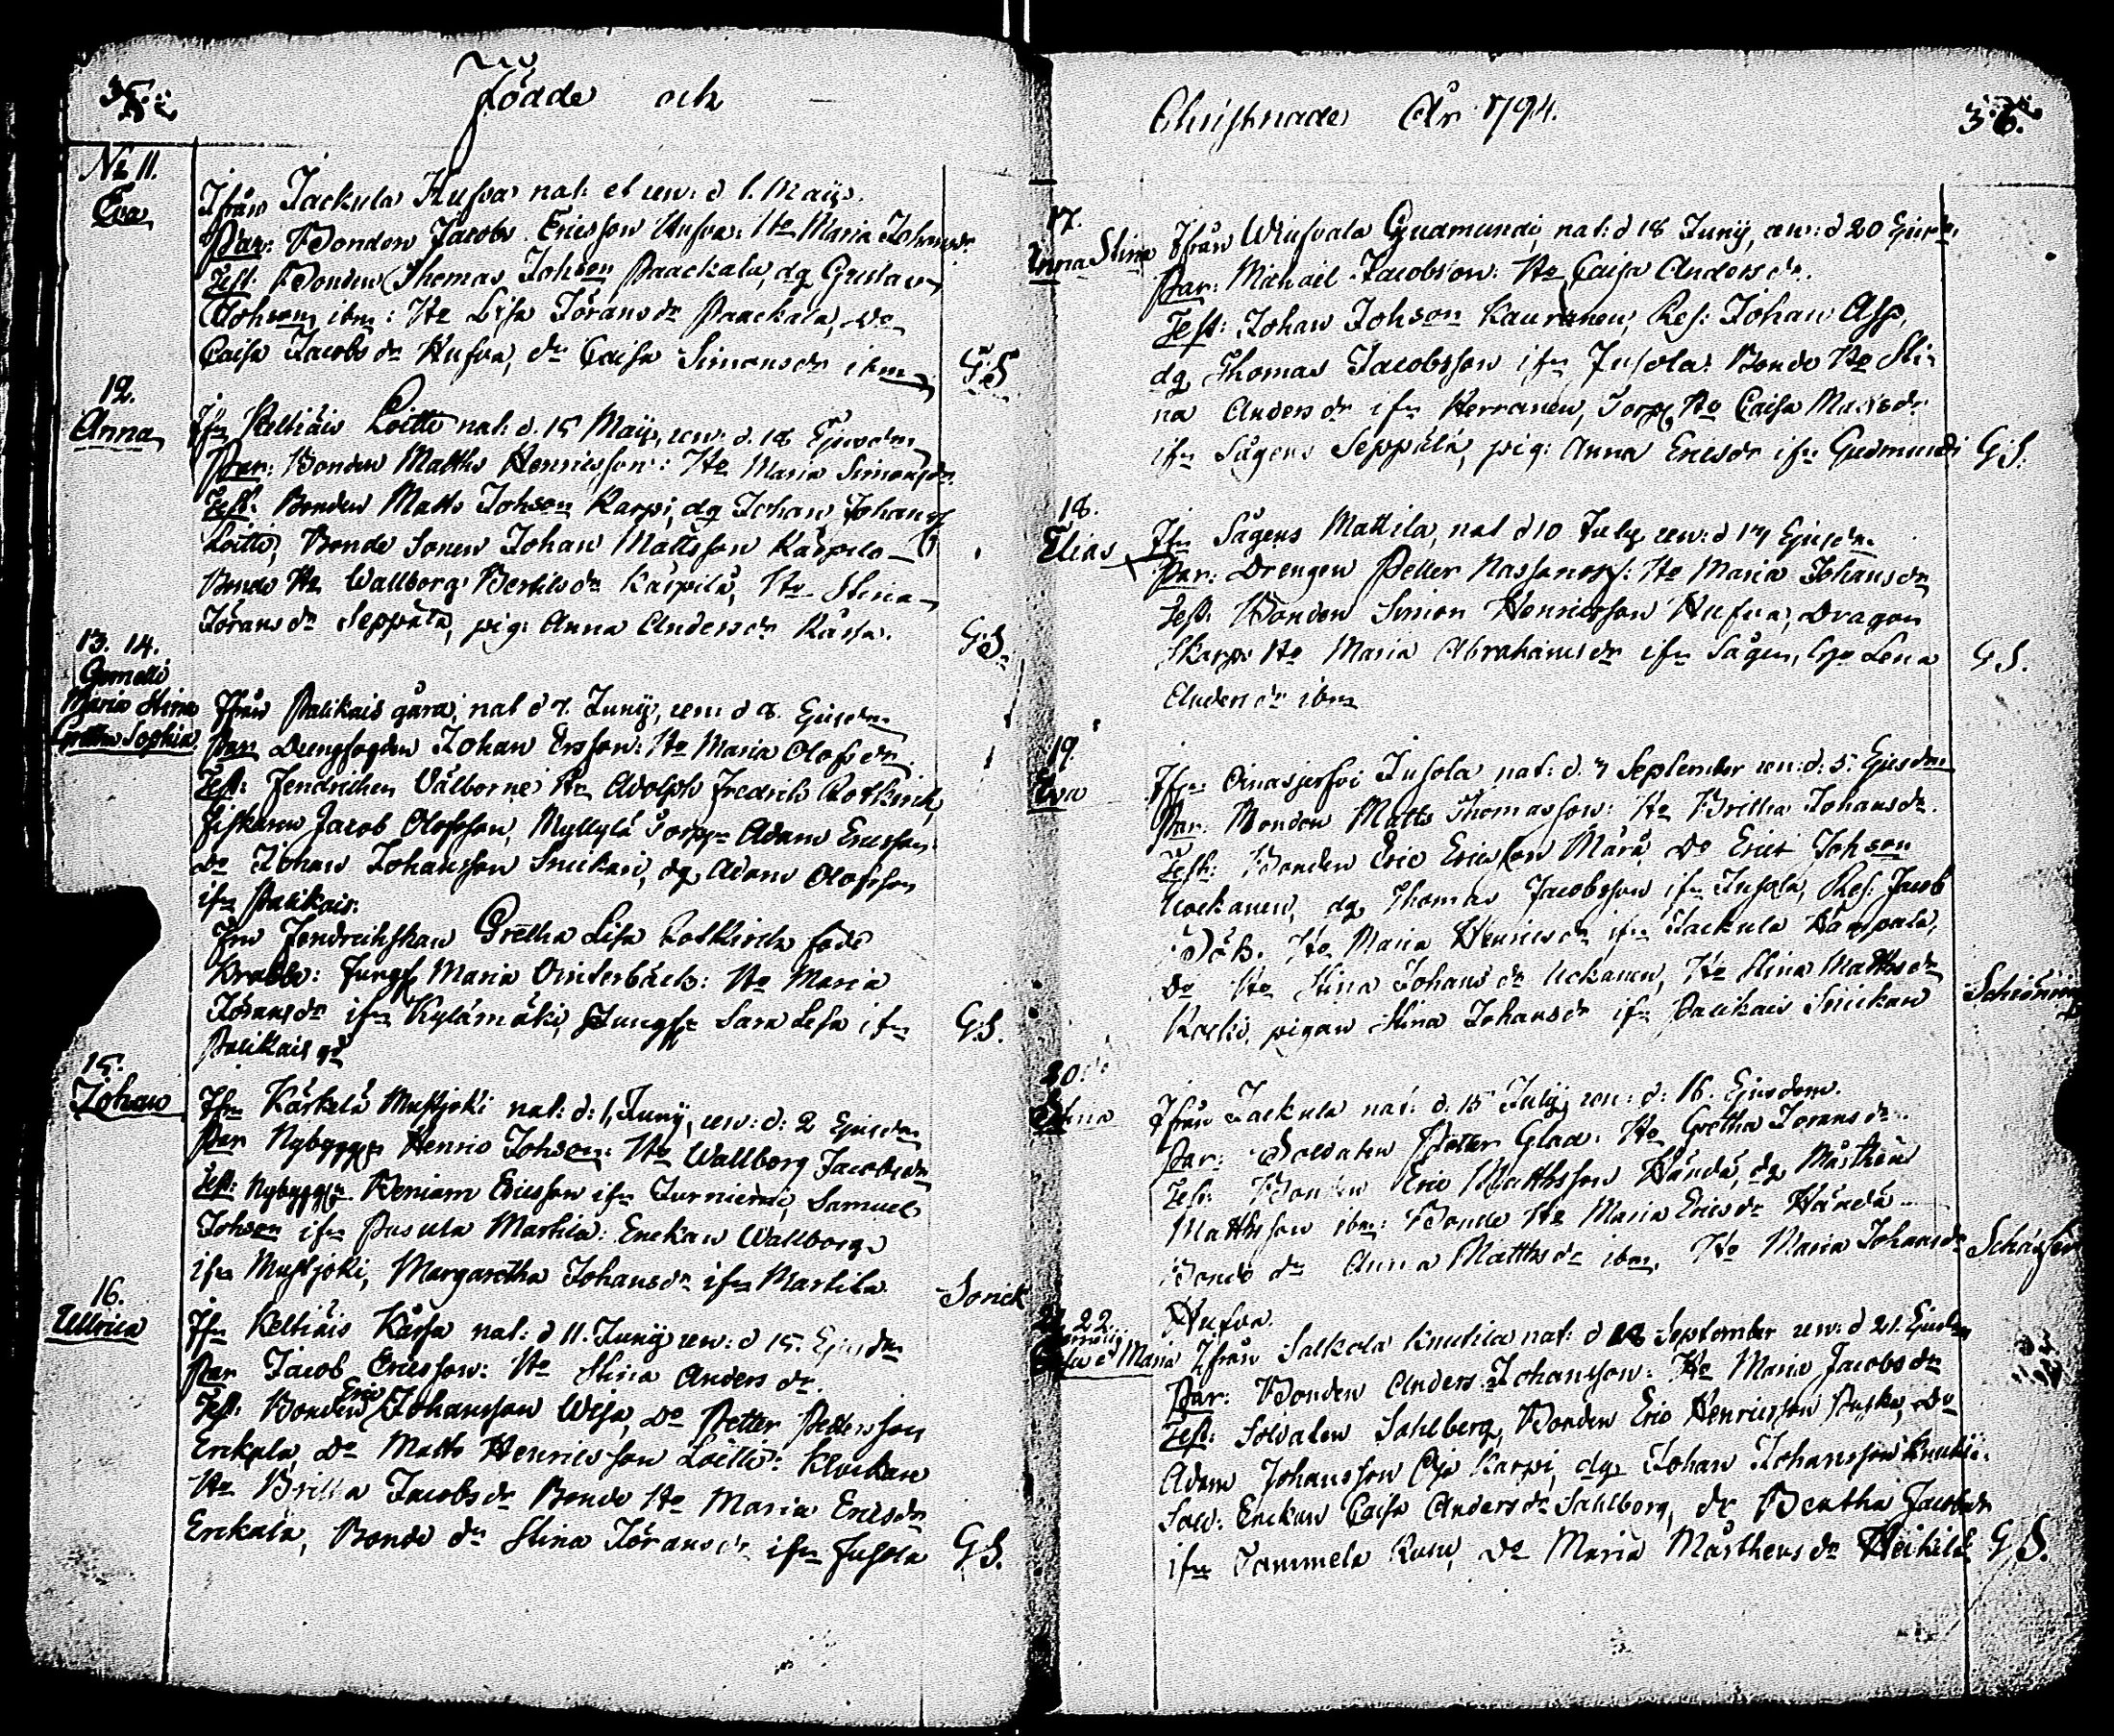 35.
Födde och
No 11.
Eva
Ifrån Jackula Hufva nat: et ren: d 1. Maij.
Par: Bonden Jacob Ericsson Hufva: Ho Maria Johansdr
Test: Bonden Thomas Johson Paackala, dg Gustav
Johson ibm: Ho Lisa Jöransdr Paackala, Do
Caisa Jacobsdr Hufva, dr Caisa Simonsdr ibm G:S
12.
Anna
Ifn Keltiäis Loitti nat: d. 15 Maij, ren: d. 18 Ejusdm
Par: Bonden Matths Henricsson: Ho Maria Simonsdr.
Test: Bonden Matts Johson Karpi, dg Johan Johanss
Loitti, Bonde Sonen Johan Mattsson Käspilä
Bonde Ho Wallborg Bertilsdr Käspilä, Ho Stina
Jöransdr Seppälä, pig: Anna Andersdr Kässa. G:S.
13. 14.
Gemelli
Maria Stina
Gretha Sophia
Ifrån Palikais gård, nat d 7. Junij, ren: d 8. Ejusdm
Par Drengfogden Johan Ersson: Ho Maria Olofsdr.
Test: Fendrichen Välborne Hr Adolph Fredrich Rotkirch,
Fiskaren Jacob Olofsson, Myllylä Torpr Adam Ericsson
do Johan Johansson Snickari, dg Adam Olofsson
ifn Palikais.
Fru Fendrichskan Gretha Lisa Rotkirch född
Krabbe: Jungf Maria Öinterbäck: Ho Maria
Jöransdr ifn Kylämäki, Jungfr Sara Lisa ifn G.S.
Palikais gd
15.
Johan
Ifn Käskelä Mustjoki nat: d: 1, Junij, ren: d: 2 Ejusdm
Par Nybyggr Henric Johson: Ho Wallborg Jacobsdr
Test: Nybyggr Beniam Ericsson ifn Turniemi, Samuel
Johson ifn Pasula Martila: Enckan Wallborg
ifn Mustjoki, Margaretha Johansdr ifn Martila Sonck
16.
Ullrica
Ifn Keltiäis Kässa nat: d 11. Junij ren: d 15. Ejusdm
Par Jacob Ericsson: Ho Stina Andersdr.
Test: Bonden Eric Johansson Wisa, Do Petter Pettersson
Erckala, Do Matts Henricsson Loitti: Klockare
Ho Britta Jacobsdr Bonde Ho Maria Ericsdr
Erckala, Bonde dr Stina Jöransdr ifn Jusola G.S.
Christnade År 1794.
36.
17.
Anna Stina
Ifrån Wiufvala Gudmundi, nat: d 18 Junij, ren: d 20 Ejusd.
Par: Michail Jacobson: Ho Caisa Andersdr.
Test: Johan Johson Kauranen, Res: Johan Asp,
dg Thomas Jacobsson ifn Jusola: Bonde Ho Sti-
na Andersdr ifn Kerranen, Torp Ho Caisa Mattsdr
ifn Sågens Seppälä, pig: Anna Ericsdr ifn Gudmundi G.S.
18.
Elias
Ifn Sågens Mattila, nat d 10 July ren: d 14 Ejusdm
Par: Drengen Petter Nassonoff: Ho Maria Johansdr
Test: Bonden Simon Henricsson Hufva, Dragon
Skarps Ho Maria Abrahamsdr ifn Sågen, Lena G.S.
Andersdr ibm
19.
Eva
Ifn Oinasjerfvi Jusola nat: d. 4 September ren: d: 5. Ejusdm
Par: Bonden Matts Thomasson: Ho Britha Johansdr.
Test: Bonden Eric Ericsson Märä, Do Eric Johson
Uockanen, dg Thomas Jacobsson ifn Jusola, Res: Jacob
Ho Maria Henricsdr ifn Jackula
do Ho Stina Johansdr Uckanen, Ho Stina Matthsdr
Koski, pigan Stina Johansdr ifn Palikais Snickari
20.
Stina
Ifrån Jackula nat: d. 15 July, ren: d: 16. Ejusdem.
Par: Soldaten Petter Glad. Ho Gretha Joransdr.
Test: Bonden Eric Matthsson Händä, dg Mårthen
Matthsson ibm: Bonde Ho Maria Ericsdr Händä
Bonde dr Anna Matthsdr ibm. Ho Maria Johansdr
Hufva.
21. 22.
Gemelli
et Maria
Ifrån Salkola Knutila nat: d 18 September ren: d 21. Ejusdm
Par: Bonden Anders Johansson: Ho Maria Jacobsdr
Test: Soldaten Sahlberg, Bonden Eric Henricsson Puska, do
Adam Johansson Karpi, dg Johan Johansson Knuti-
Sold: Enckan Caisa Andersdr Sahlborg, dr Beatha Jacobsdr
ifn Tammela Kusu, Do Maria Mårthensdr Heikilä G S.